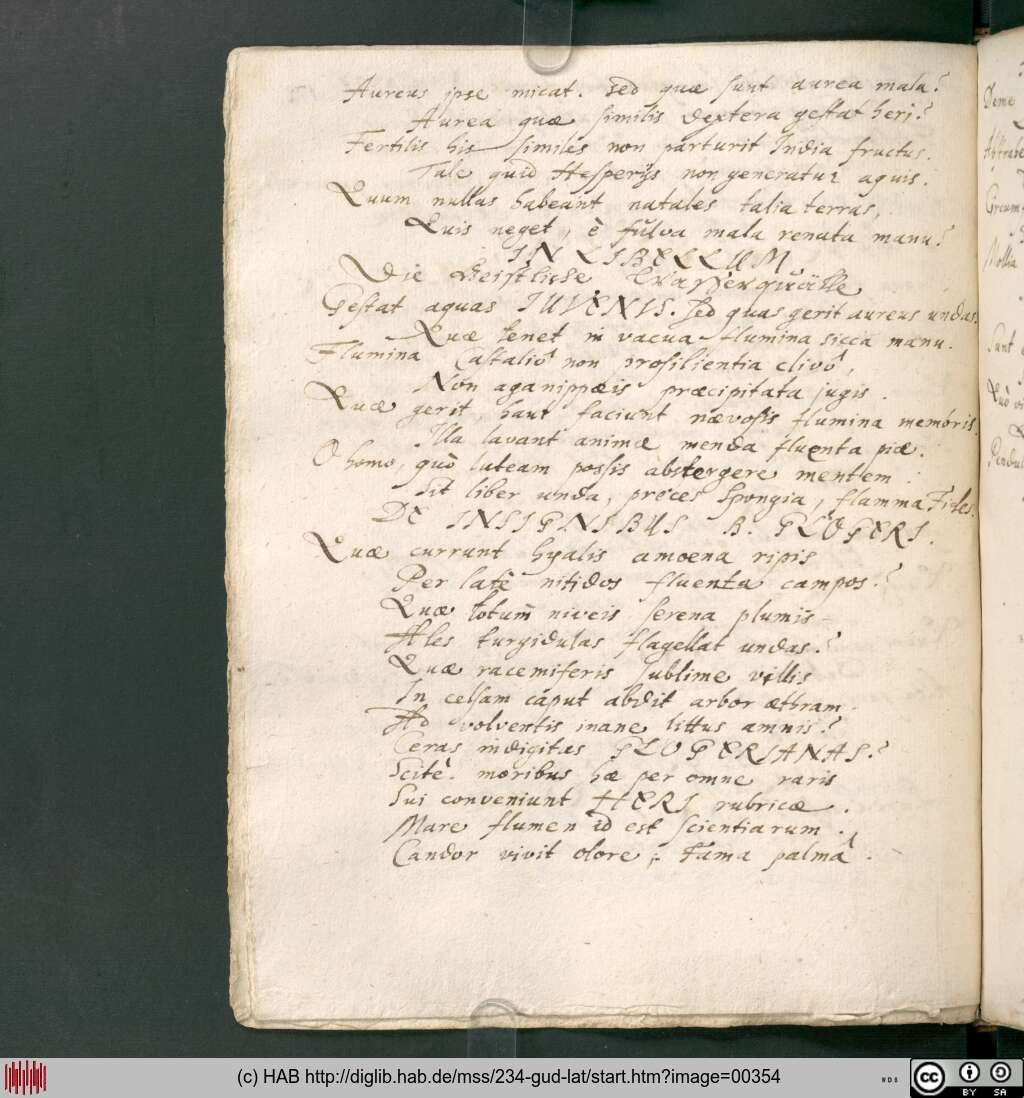 Aureus ipse micat. sed quæ sunt aurea mala?
Aurea quæ similis dextera gestat heri?
Fertilis his similes non parturit India fructus.
Tale quid Hesperijs non generatur aquis.
Quum nullas habeant natales talia terras,
Quis neget, è fulva mala renata manu?
IN LIBELLUM
Die Geistliche Wasserquälle
Gestat aquas IUVENIS. sed quas gerit aureus undas.
Quæ tenet in vacua flumina sicca manu.
Flumina Castaliô non prosilientia clivô,
Non aganippæis præcipitata jugis.
Quæ gerit, haut faciunt nævosis flumina membris.
Illa lavant animæ menda fluenta piæ.
O homo, quô luteam possis abstergere mentem
Sit liber unda, preces spongia, flamma Fides.
DE INSIGNIBUS B. GLOGERI.
Quæ currunt hyalis amoena ripis
Per latè nitidos fluenta campos?
Quæ totum niveis serena plumis
Ales turgidulas flagellat undas?
Quæ racemiferis sublime villis
In celsam caput abdit arbor æthram
Ad volventis inane littus amnis?
Ceras indigitas GLOGERIANAS?
Scitè. moribus hæ per omne raris
Sui conveniunt HERI rubricæ.
Mare flumen id est scientiarum.
Candor vivit olore; Fama palmâ.
Deme
Mollia
Sunt
(c) HAB http://diglib.hab.de/mss/234-gud-lat/start.htm?image=00354
WDB
cc BY SA